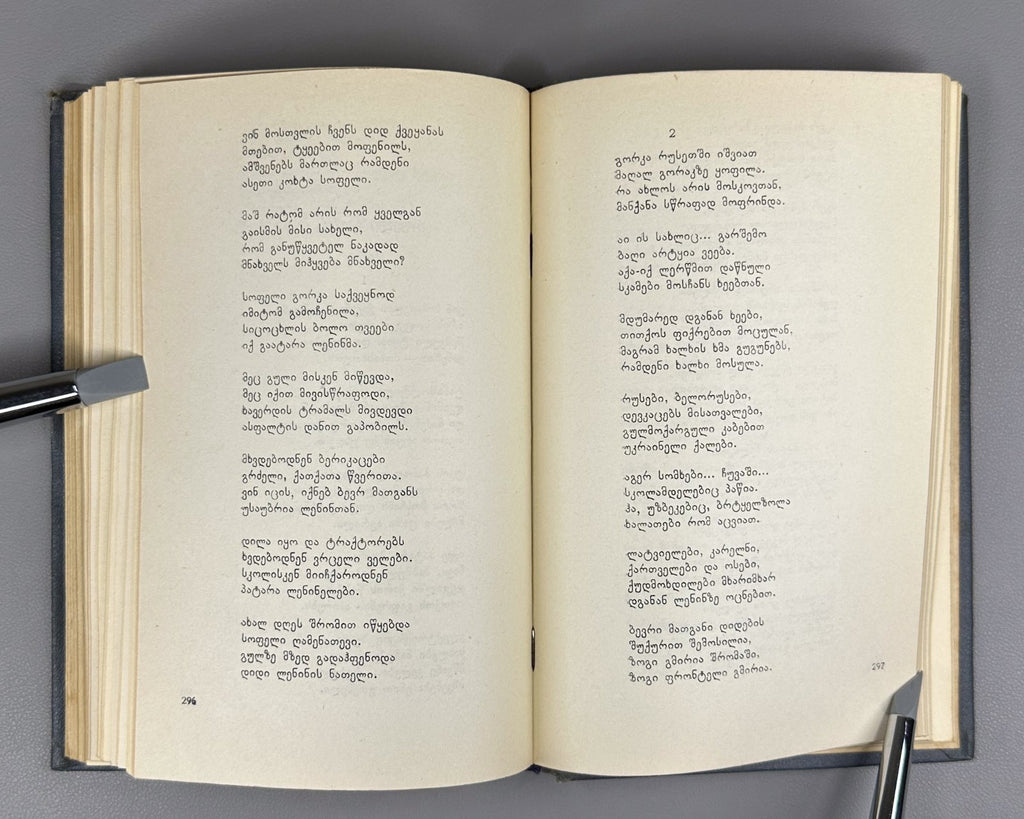 ვინ მოსთვლის ჩვენს დიდ ქვეყანას
მთებით, ტყეებით მოფენილს,
ამშვენებს მართლაც რამდენი
ასეთი კოხტა სოფელი.
მაშ რატომ არის რომ ყველგან
გაისმის მისი სახელი,
რომ განუწყვეტელ ნაკადად
მნახველს მიჰყვება მნახველი?
სოფელი გორკა საქვეყნოდ
იმიტომ გამოჩენილა,
სიცოცხლის ბოლო თვეები
იქ გაატარა ლენინმა.
მეც გული მისკენ მიწევდა,
მეც იქით მივისწრაფოდი,
ხავერდის ტრამალს მივდევდი
ასფალტის დანით გაპობილს.
მხვდებოდნენ ბერიკაცები
გრძელი, ქათქათა წვერითა.
ვინ იცის, იქნებ ბევრ მათგანს
უსაუბრია ლენინთან.
დილა იყო და ტრაქტორებს
ხვდებოდნენ ვრცელი ველები.
სკოლისკენ მიიჩქაროდნენ
პატარა ლენინელები.
ახალ დღეს შრომით იწყებდა
სოფელი ღამენათევი.
გულზე მზედ გადაჰფენოდა
დიდი ლენინის ნათელი.
296
2
გორკა რუსეთში იშვიათ
მაღალ გორაკზე ყოფილა.
რა ახლოს არის მოსკოვთან,
მანქანა სწრაფად მოფრინდა.
აი ის სახლიც... გარშემო
ბაღი არტყია ვეება.
აქა-იქ ლერწმით დაწნული
სკამები მოსჩანს ხეებთან.
მდუმარედ დგანან ხეები,
თითქოს ფიქრებით მოცულან,
მაგრამ ხალხის ხმა გუგუნებს,
რამდენი ხალხი მოსულა.
რუსები, ბელორუსები,
დევკაცებს მისათვალები,
გულმოქარგული კაბებით
უკრაინელი ქალები.
აგერ სომხები... ჩუვაში...
სკოლამდელებიც პაწია.
ჰა, უზბეკებიც, ბრტყელზოლა
ხალათები რომ აცვიათ.
ლატვიელები, კარელნი,
ქართველები და ოსები,
ქუდმოხდილები მხარიმხარ
დგანან ლენინზე ოცნებით.
ბევრი მათგანი დიდების
შუქურით შემოსილია,
ზოგი გმირია შრომაში,
ზოგი ფრონტელი გმირია.
297